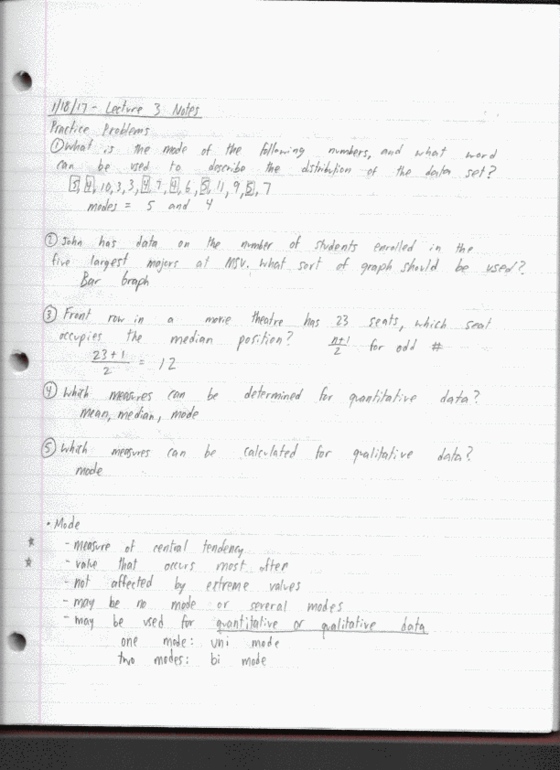 1/18/17 - Lecture 3 Notes
Practice Problems
① What is the mode of the following numbers, and what word
can be used to describe the distribution of the data set?
5, 4, 10, 3, 3, 4, 7, 4, 6, 5, 11, 9, 5, 7
modes = 5 and 4
② John has data on the number of students enrolled in the
five largest majors at MSU. What sort of graph should be used?
Bar Graph
③ Front row in a movie theatre has 23 seats, which seat
occupies the median position? n+1/2 for odd #
23+1/2 = 12
④ Which measures can be determined for quantitative data?
mean, median, mode
⑤ Which measures can be calculated for qualitative data?
mode
• Mode
* - measure of central tendency
* - value that occurs most often
- not affected by extreme values
- may be no mode or several modes
- may be used for quantitative or qualitative data
one mode: uni mode
two modes: bi mode